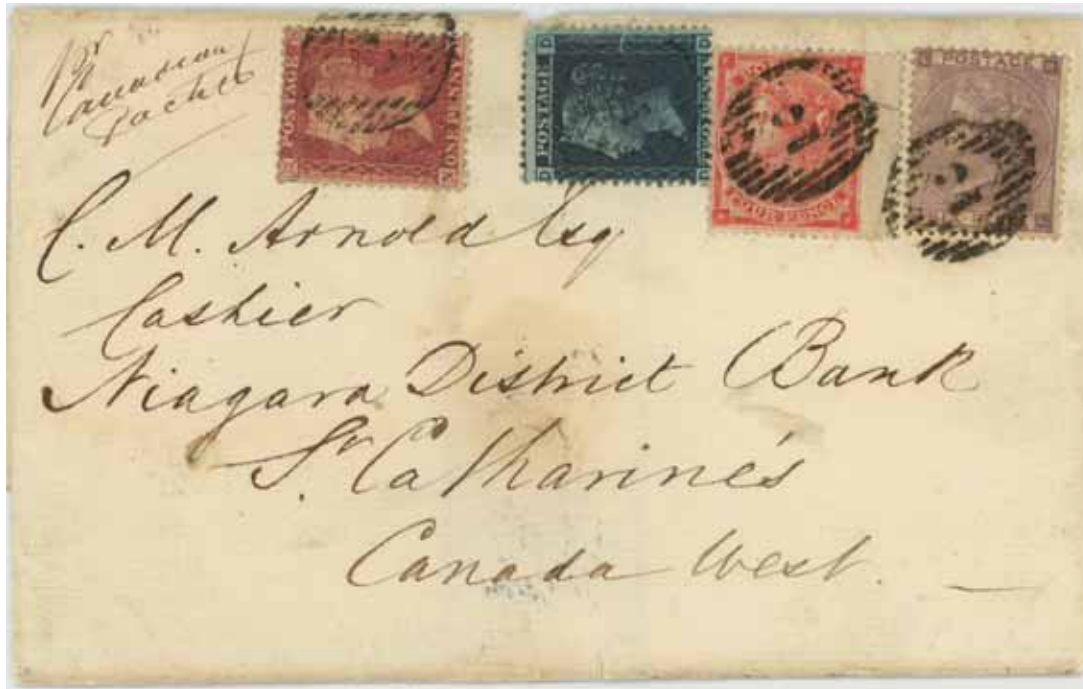 Pr
Canadian
Packet
POSTAGE
ONE PENNY
POSTAGE
POSTAGE
C. M. Arnold Esq
Cashier
Niagara District Bank
St Catharine's
Canada West.